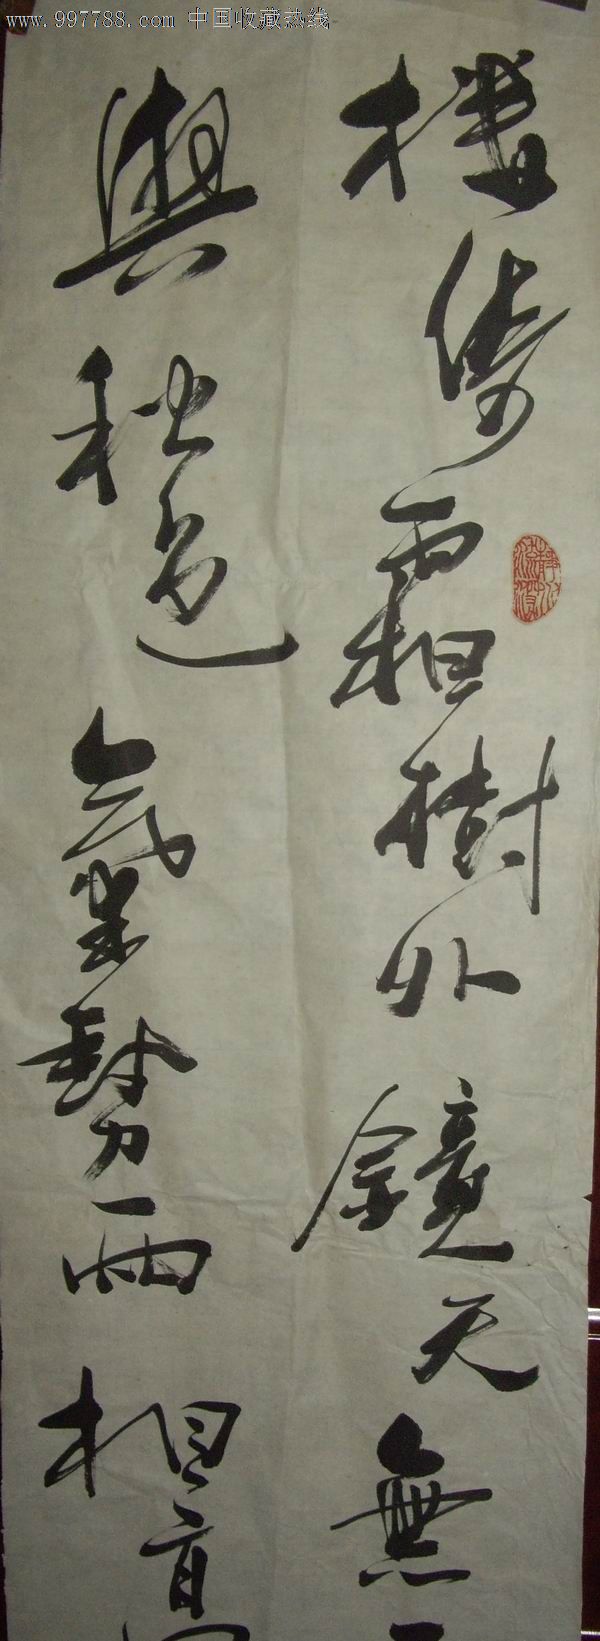 www.997788.com 中国收藏热线
樓倚霜樹外鏡天無
與秋色氣勢兩相高